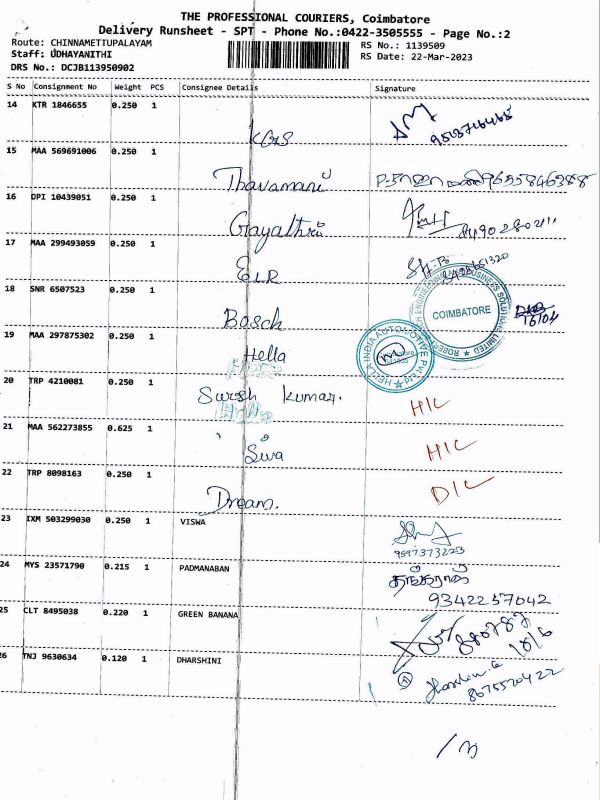 THE PROFESSIONAL COURIERS, Coimbatore
Delivery Runsheet - SPT - Phone No.:0422-3505555 - Page No.:2
Route: CHINNAMETTUPALAYAM RS No.: 1139509
Staff: UDHAYANITHI RS Date: 22-Mar-2023
DRS No.: DCJB113950902
S No Consignment No Weight PCS Consignee Details Signature
14 KTR 1846655 0.250 1
KGS
15 MAA 569691006 0.250 1
Thavamani
16 DPI 10439051 0.250 1
Gayathri
17 MAA 299493059 0.250 1
ELR
18 SNR 6507523 0.250 1
Bosch COIMBATORE
19 MAA 297875302 0.250 1
Hella HELLA INDIA AUTOMOTIVE PVT
20 TRP 4210081 0.250 1
Suresh Kumar. H/C
21 MAA 562273855 0.625 1
Siva H/C
22 TRP 8098163 0.250 1
Dream. D/C
23 IXM 503299030 0.250 1 VISWA
24 MYS 23571790 0.215 1 PADMANABAN
9342257042
25 CLT 8495038 0.220 1 GREEN BANANA
26 TNJ 9630634 0.120 1 DHARSHINI
8675570422